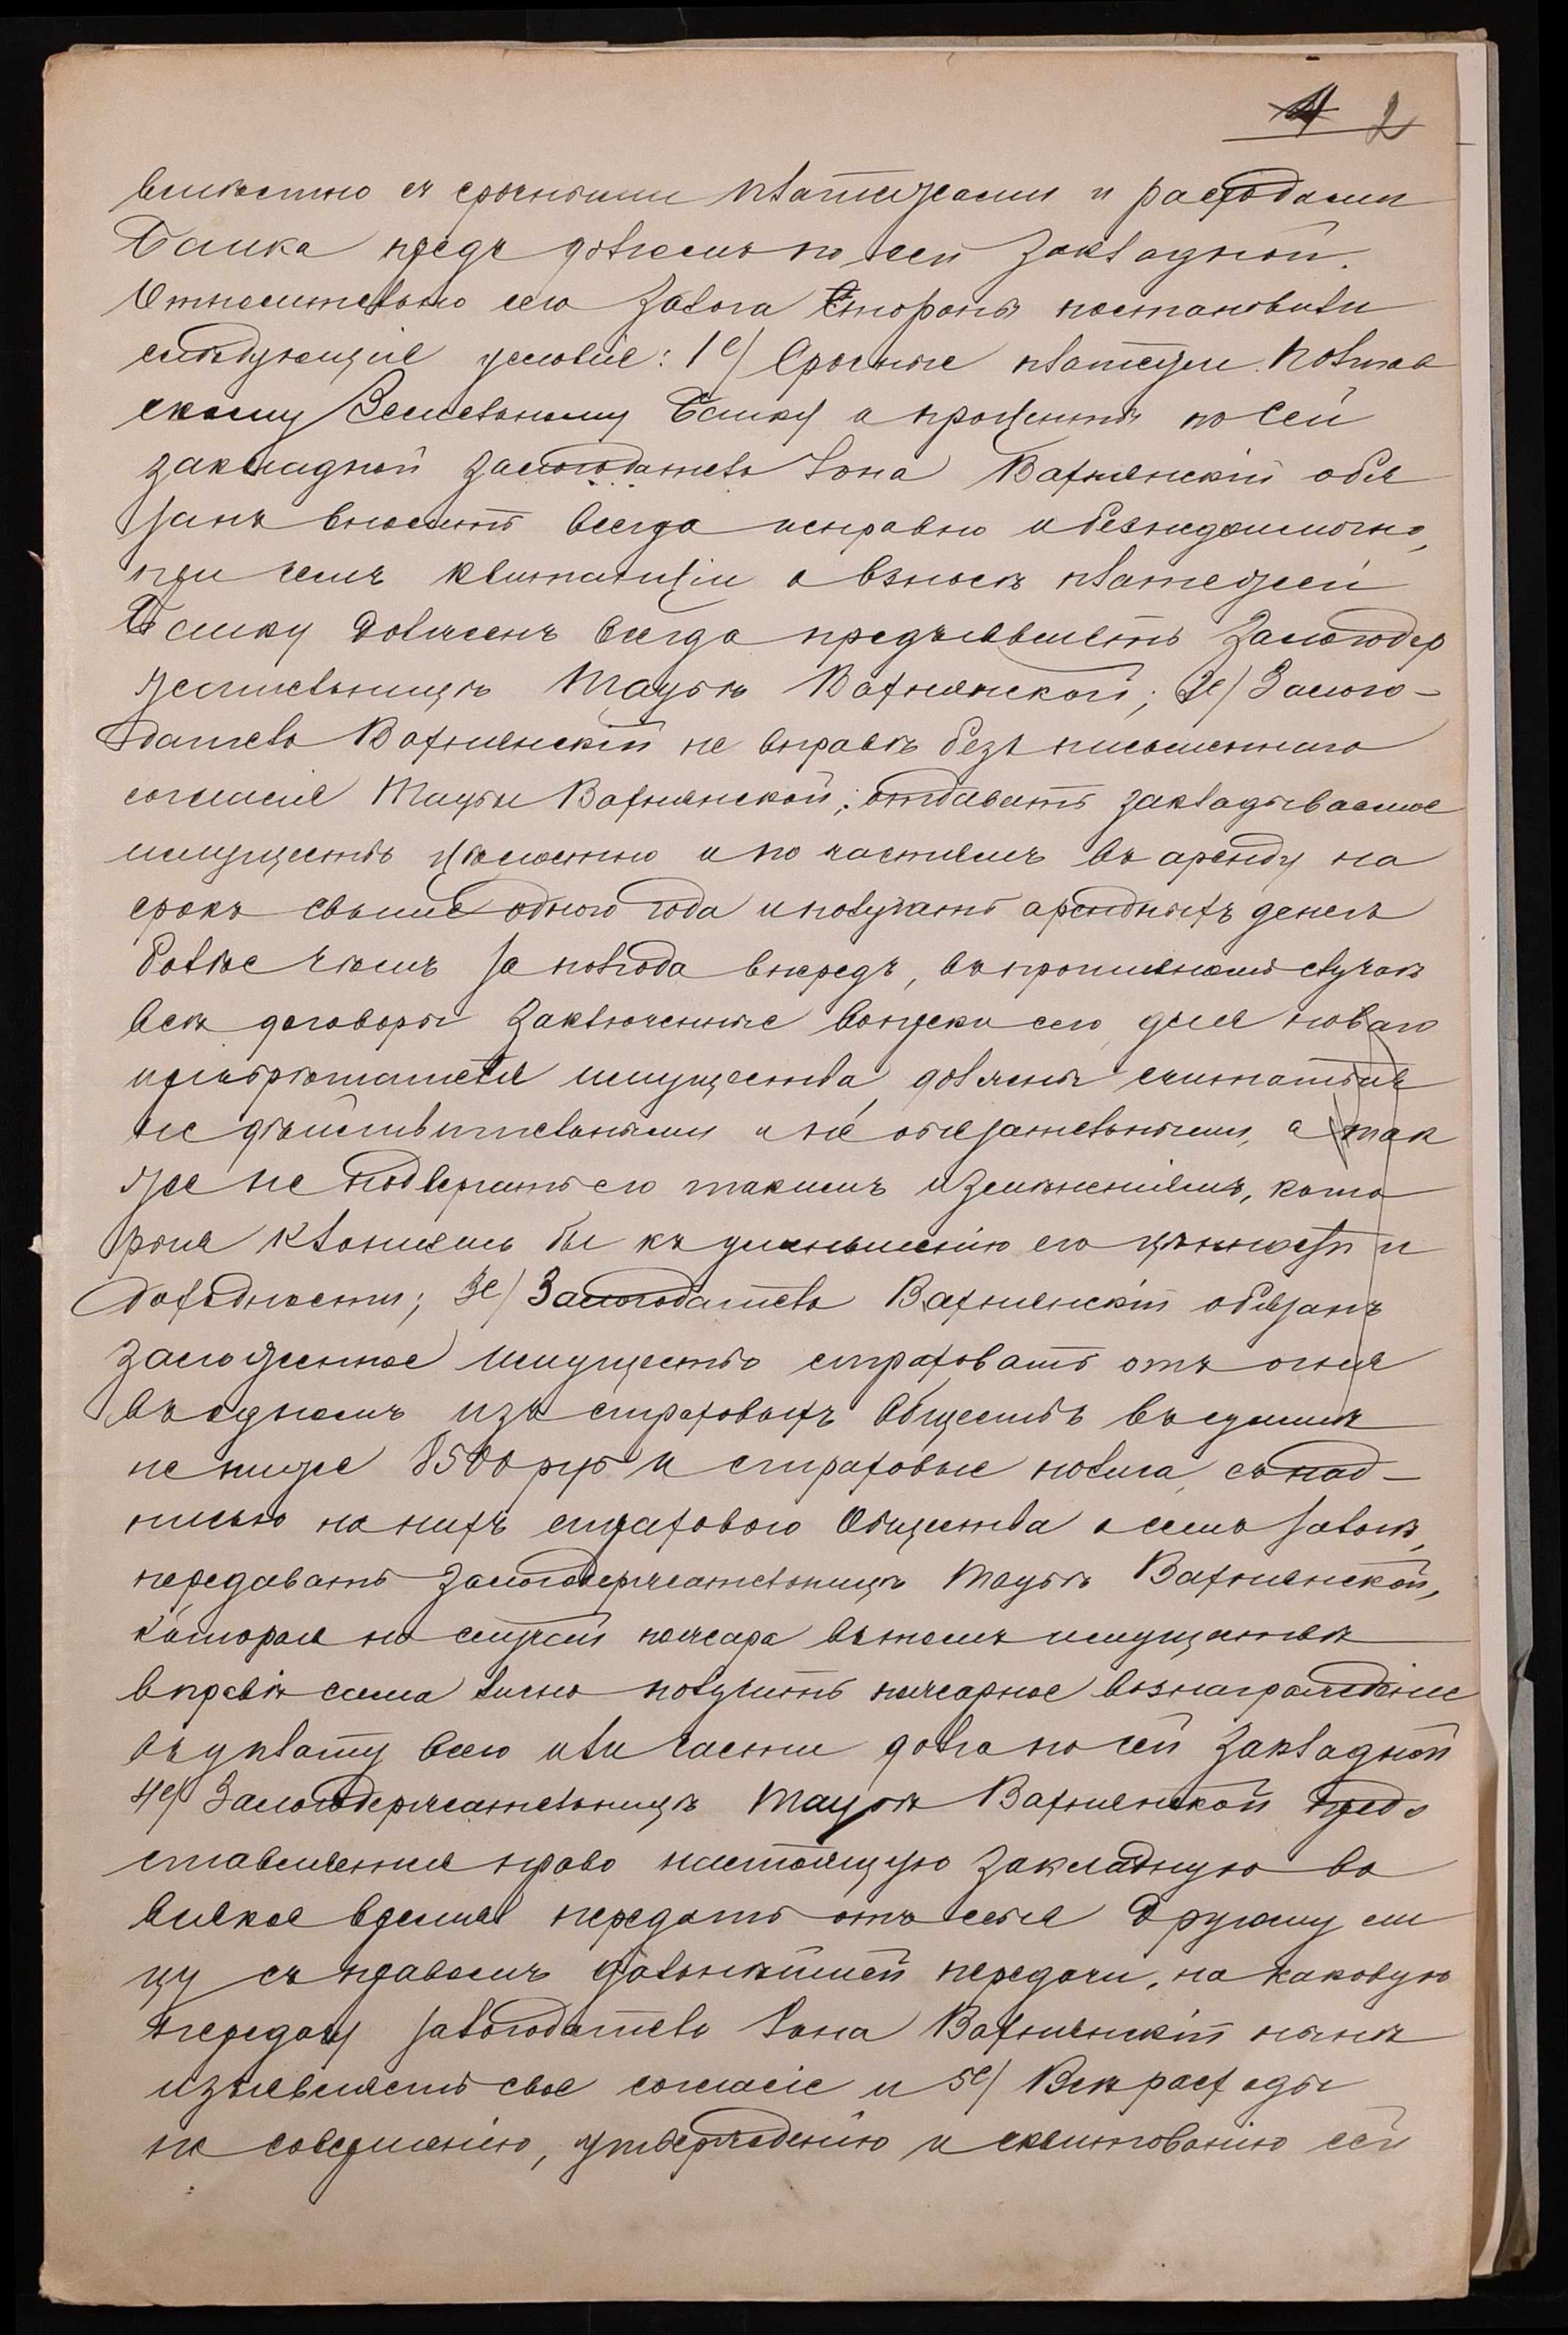 4 2
вмѣстно съ срочными платежами и расходами
Банка предъ долгомъ по сей закладной.
Относительно сего залога Стороны постановили
слѣдующія условія: 1е/ Срочные платежи Полтав
скому Земельному Банку и проценты по сей
закладной залогодатель Іона Вахнянскій обя
занъ вносить всегда исправно и безнедоимочно,
при чемъ квитанціи о взносѣ платежей
Банку долженъ всегда предъявлять Залогодер
жательницѣ Мауѣ Вахнянской; 2е/ Залого-
датель Вахнянскій не вправѣ безъ письменнаго
согласія Мауы Вахнянской; отдавать закладываемое
имущество цѣлостно и по частямъ въ аренду на
срокъ свыше одного года и получать арендныхъ денегъ
болѣе чѣмъ за полгода впередъ, въ противномъ случаѣ
всѣ договоры заключенные вопреки сего, для новаго
пріобрѣтателя имущества, должны считаться
не дѣйствительными и не обязательными, а так
же не подвергать его такимъ измѣненіямъ, кото
рыя клонились бы къ уменьшенію его цѣнности и
доходности; 3е/ Залогодатель Вахнянскій обязанъ
заложенное имущество страховать отъ огня
въ одномъ изъ страховыхъ Обществъ въ суммѣ
не ниже 8500 руб и страховые полиса, съ над-
писью на нихъ страхового Общества о семъ залогѣ,
передавать залогодержательницѣ Мауѣ Вахнянской,
которая на случай пожара въ томъ имуществѣ
вправѣ сама лично получить пожарное вознагражденіе
въ уплату всего или части долга по сей закладной
4е/ Залогодержательницѣ Мауѣ Вахнянской предо
ставляется право настоящую закладную во
всякое время передать отъ себя другому ли
цу съ правомъ дальнѣйшей передачи, на каковую
передачу залогодатель Іона Вахнянскій нынѣ
изъявляетъ свое согласіе и 5е/ Всѣ расходы
по совершенію, утвержденію и сквитованію сей